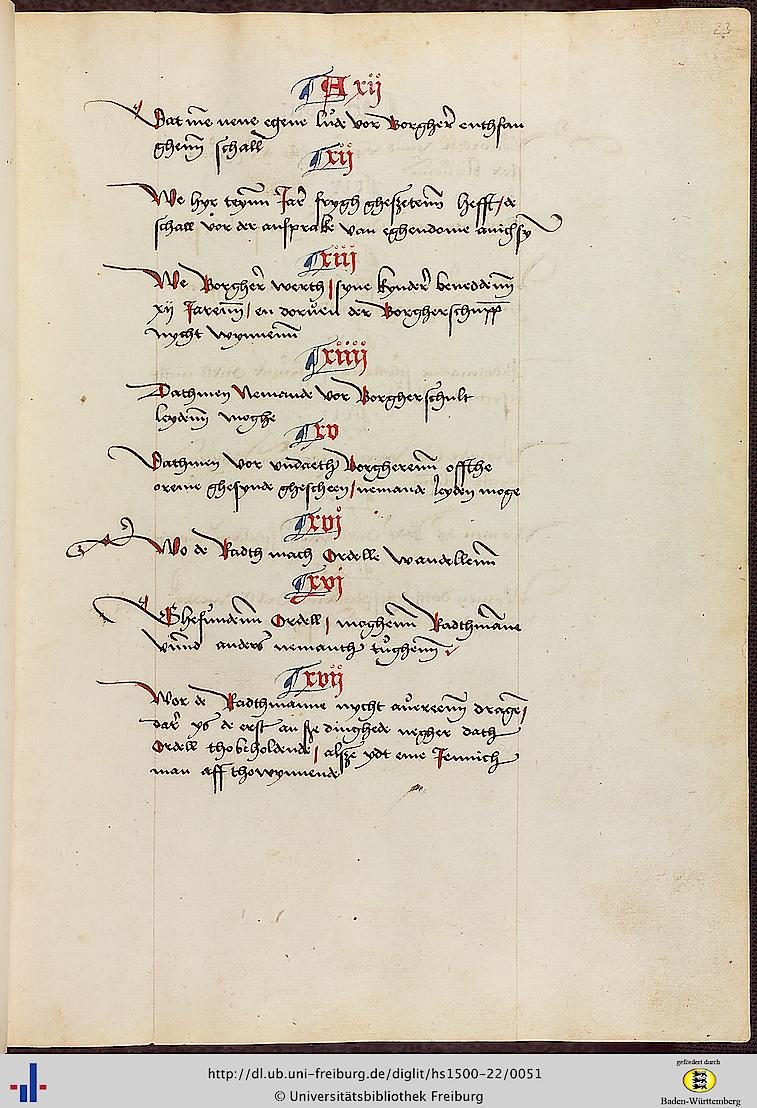 23
A xij
Dat me nene egene lude vor Borgher enthfan
ghenn schall
xij
We hyr teynn Jar frygh gheszetenn hefft / de
schall vor der ansprake van eghendome
xiij
We Borgher werth / syne kynder beneddenn
xij Jarenn / en doruen der Borgherschupp
nycht wynnenn
xiiij
Dathmen Nemande vor Borgherschult
leydenn moghe
xv
Dathmen vor vndaeth Borgherenn offthe
oreme ghesynde gescheen / nemande leyden moge
xvj
Wo de Radth mach Ordelle wandellenn
xvj
Ghefundenn Ordell / moghenn Radthmanne
vnnd anders nemanth tughenn
xvij
Wor de Radthmanne nycht auereenn dragen /
dar ys de erst an sze dinghede negher dath
Ordell thobeholdende / alsze ydt eme Jennich
man aff thowynnende
http://dl.ub.uni-freiburg.de/diglit/hs1500-22/0051
© Universitätsbibliothek Freiburg
gefördert durch
Baden-Württemberg